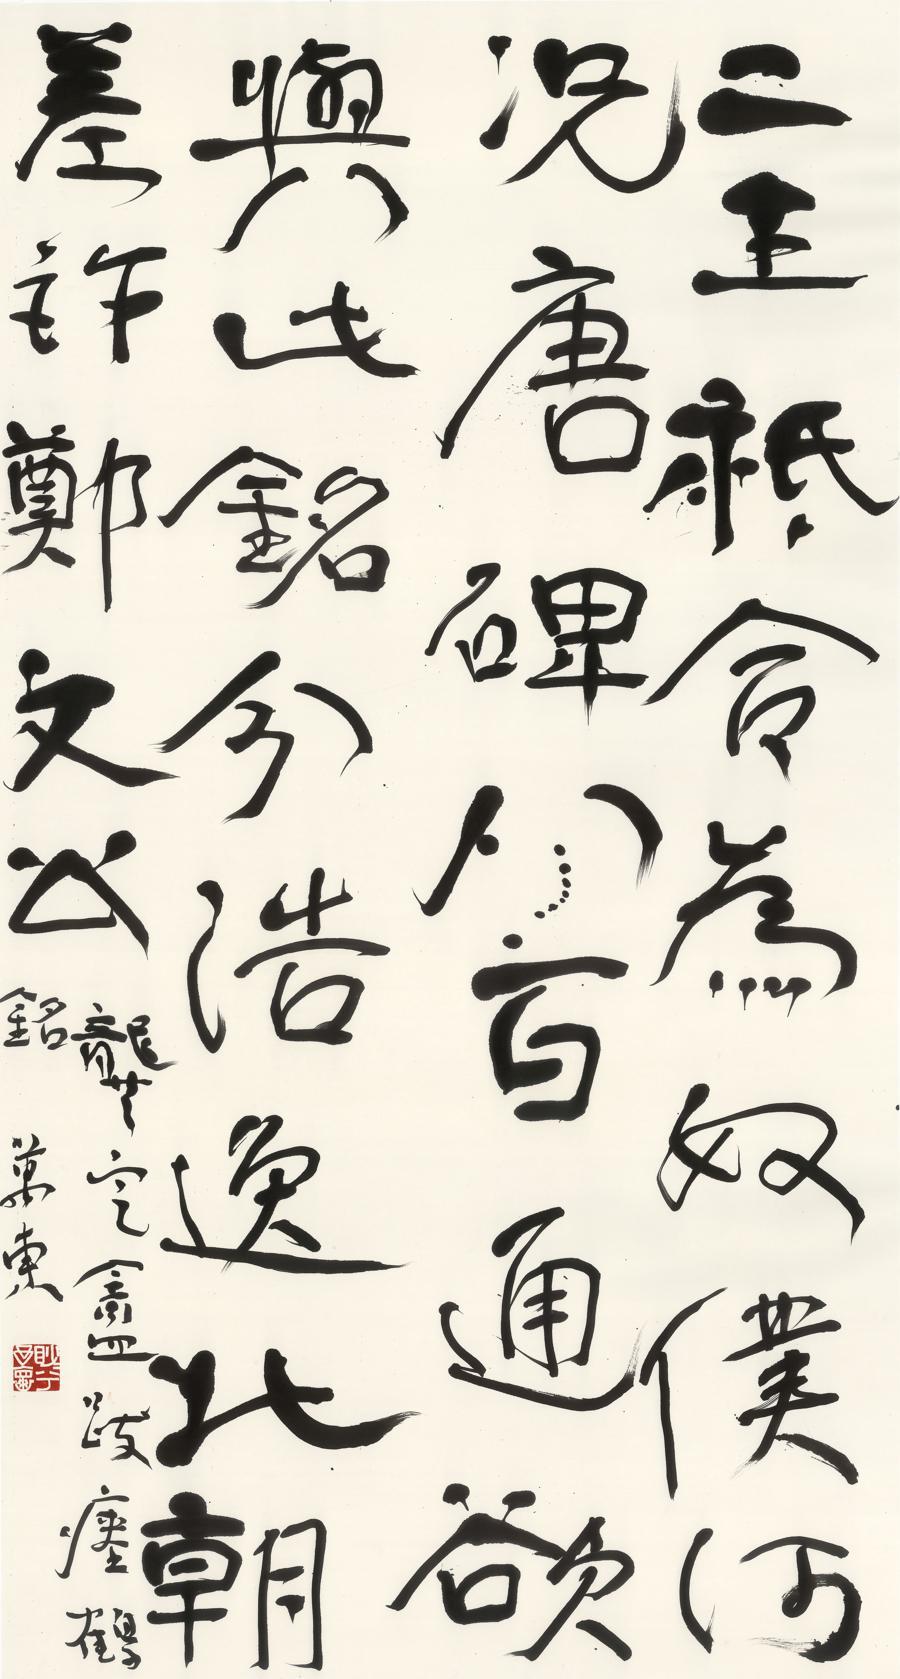 二王祇合為奴僕何
況唐碑八百通欲
與此銘分浩逸北朝
差許鄭文公
龔定盦題跋瘞鶴
銘 萬東